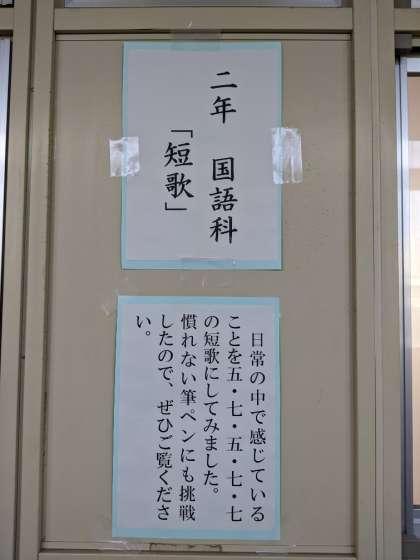 二年 国語科
「短歌」
日常の中で感じている
ことを五・七・五・七・七
の短歌にしてみました。
慣れない筆ペンにも挑戦
したので、ぜひご覧くださ
い。